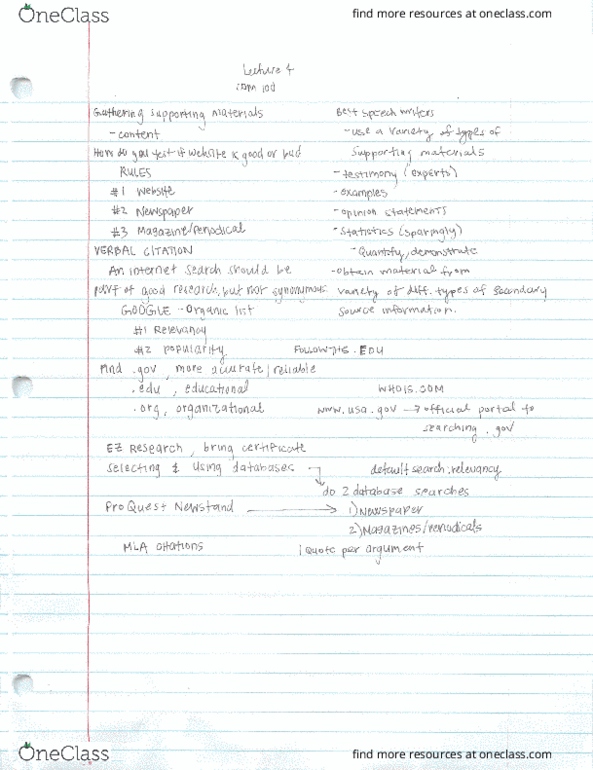 OneClass
find more resources at oneclass.com
Lecture 4
COM 100
Gathering supporting materials
- content
How do you test if website is good or bad
RULES
#1 Website
#2 Newspaper
#3 Magazine/Periodical
VERBAL CITATION
An internet search should be
part of good research, but not synonymous
GOOGLE - Organic list
#1 Relevancy
#2 popularity
Find .gov, more accurate/reliable
.edu, educational
.org, organizational
EZ Research, bring certificate
selecting & using databases
ProQuest Newstand
MLA citations
Best speech writers
- use a variety of types of
supporting materials
- testimony (experts)
- examples
- opinion statements
- Statistics (sparingly)
- Quantify, demonstrate
- obtain material from
variety of diff. types of secondary
source information.
.EDU
WHOIS.COM
www.usa.gov → official portal to
searching .gov
default search: relevancy
do 2 database searches
1) Newspaper
2) Magazines/Periodicals
1 quote per argument
OneClass
find more resources at oneclass.com